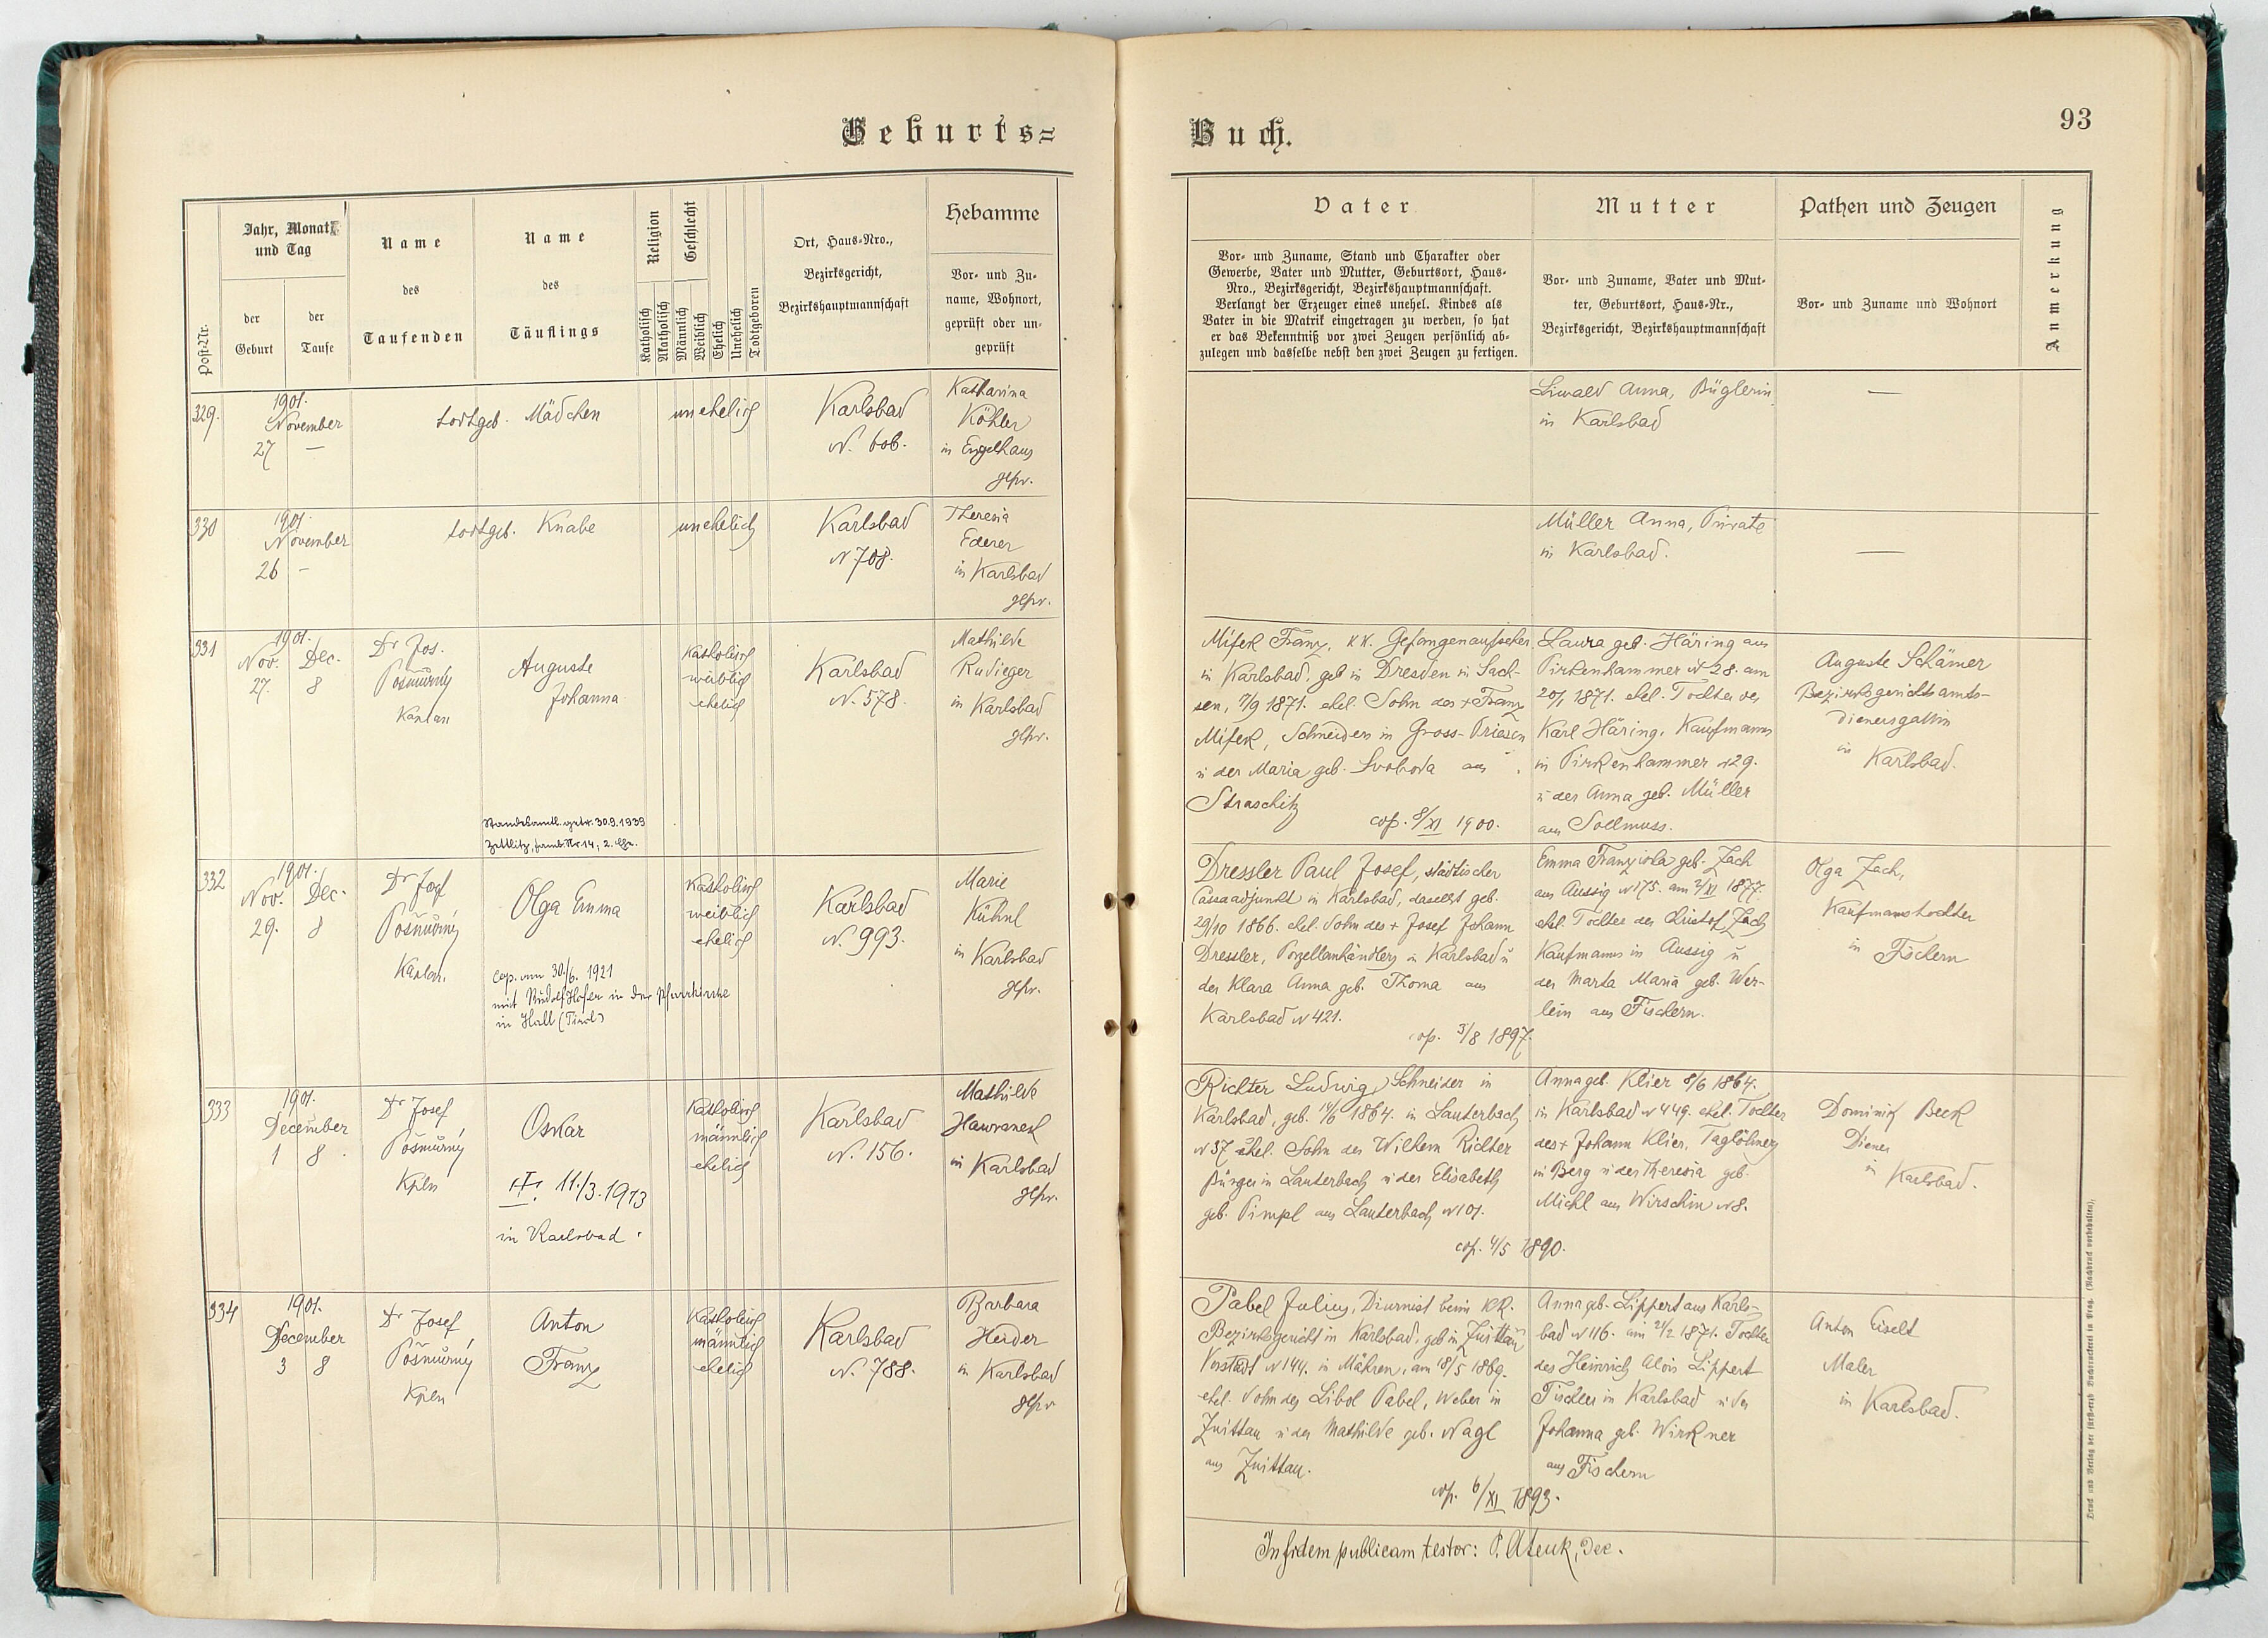 Geburts=
Post-Nr.
Jahr, Monat
und Tag
der
Geburt
der
Taufe
Name
des
Taufenden
Name
des
Täuflings
Religion
Katholisch
Akatholisch
Geschlecht
Männlich
Weiblich
Ehelich
Unehelich
Todtgeboren
Ort, Haus-Nro.,
Bezirksgericht,
Bezirkshauptmannschaft
Hebamme
Vor- und Zu-
name, Wohnort,
geprüft oder un-
geprüft
329.
1901.
November
27 —
todtgeb. Mädchen
unehelich
Karlsbad
N. 606.
Katharina
Köhler
in Engelhaus
gepr.
330
1901.
November
26 -
todtgeb. Knabe
unehelich
Karlsbad
N 708.
Theresia
Ederer
in Karlsbad
gepr.
331
1901.
Nov. Dec.
27. 8
Dr Jos.
Pošmůrný
Kaplan
Auguste
Johanna
Katholisch
weiblich
ehelich
Karlsbad
N. 578.
Mathilde
Rudieger
in Karlsbad
gepr.
Standesamtl. getr. 30.9.1939
Zettlitz, Nr. 14; 2. Ehe.
332
1901.
Nov. Dec.
29. 8
Dr Josef
Pošmůrný
Kaplan.
Olga Emma
Katholisch
weiblich
ehelich
Karlsbad
N. 993.
Marie
Kühnl
in Karlsbad
gepr.
Cop. am 30./6. 1921
mit Rudolf Hofer in der Pfarrkirche
in Hall (Tirol)
333
1901.
December
1 8
Dr Josef
Pošmůrný
Kpln
Oskar
Katholisch
männlich
ehelich
Karlsbad
N. 156.
Mathilde
Hawranek
in Karlsbad
gepr.
†. 11./3. 1973
in Karlsbad
334
1901.
December
3 8
Dr Josef
Pošmůrný
Kpln
Anton
Franz
Katholisch
männlich
ehelich
Karlsbad
N. 788.
Barbara
Heider
in Karlsbad
gepr
Buch.
93
Vater
Vor- und Zuname, Stand und Charakter oder
Gewerbe, Vater und Mutter, Geburtsort, Haus-
Nro., Bezirksgericht, Bezirkshauptmannschaft.
Verlangt der Erzeuger eines unehel. Kindes als
Vater in die Matrik eingetragen zu werden, so hat
er das Bekenntniß vor zwei Zeugen persönlich ab-
zulegen und dasselbe nebst den zwei Zeugen zu fertigen.
Mutter
Vor- und Zuname, Vater und Mut-
ter, Geburtsort, Haus-Nr.,
Bezirksgericht, Bezirkshauptmannschaft
Pathen und Zeugen
Vor- und Zuname und Wohnort
Anmerkung
Liwald Anna, Büglerin
in Karlsbad
—
Müller Anna, Private
in Karlsbad.
—
Mifek Franz, KK. Gefangenaufseher
in Karlsbad, geb in Dresden in Sach-
sen, 7/9 1871. ehel. Sohn des + Franz
Mifek, Schneiders in Gross-Priesen
u der Maria geb. Svoboda aus
Straschitz
cop. 8/XI 1900.
Laura geb. Häring aus
Pirkenhammer N 28. am
20/1 1871. ehel. Tochter des
Karl Häring, Kaufmanns
in Pirkenhammer N 29.
u der Anna geb. Müller
aus Sollmuss.
Auguste Schämer
Bezirksgerichtsamts-
dienersgattin
in
Karlsbad.
Dressler Paul Josef, städtischer
Cassaadjunkt in Karlsbad, daselbst geb.
29/10 1866. ehel. Sohn des + Josef Johann
Dressler, Porzellanhändlers in Karlsbad u
der Klara Anna geb. Thoma aus
Karlsbad N 421.
cop. 3/8 1897.
Emma Franziska geb. Zach
aus Aussig N 175. am 2/XI 1877.
ehel. Tochter des Kristof Zach
Kaufmanns in Aussig u
der Marta Maria geb. Wer-
lein aus Fischern.
Olga Zach,
Kaufmannstochter
in Fischern
Richter Ludwig, Schneider in
Karlsbad, geb. 14/6 1864. in Lauterbach
N 37 ehel. Sohn des Wilhelm Richter
Bürger in Lauterbach u der Elisabeth
geb. Pimpl aus Lauterbach N 101.
cop. 4/5 1890.
Anna geb. Klier 8/6 1864.
in Karlsbad N 449. ehel. Tochter
des + Johann Klier, Taglöhners
in Berg u der Theresia geb.
Michl aus Wirschin N 8.
Dominik Beck
Diener
in
Karlsbad.
Pabel Julius, Diurnist beim KK.
Bezirksgericht in Karlsbad, geb in Zwittau
Vorstadt N 144. in Mähren, am 18/5 1869.
ehel. Sohn des Libol Pabel, Weber in
Zwittau u der Mathilde geb. Nagl
aus Zwittau.
cop. 6/XI 1893.
Anna geb. Lippert aus Karls-
bad N 116. am 21/2 1871. Tochter
des Heinrich Alois Lippert
Tischler in Karlsbad u der
Johanna geb. Wirkner
aus Fischern
Anton Eiselt
Maler
in Karlsbad.
In fidem publicam testor: P. Atenk, Dec.
Druck und Verlag der fürst-erzb. Buchdruckerei in Prag. (Nachdruck vorbehalten).